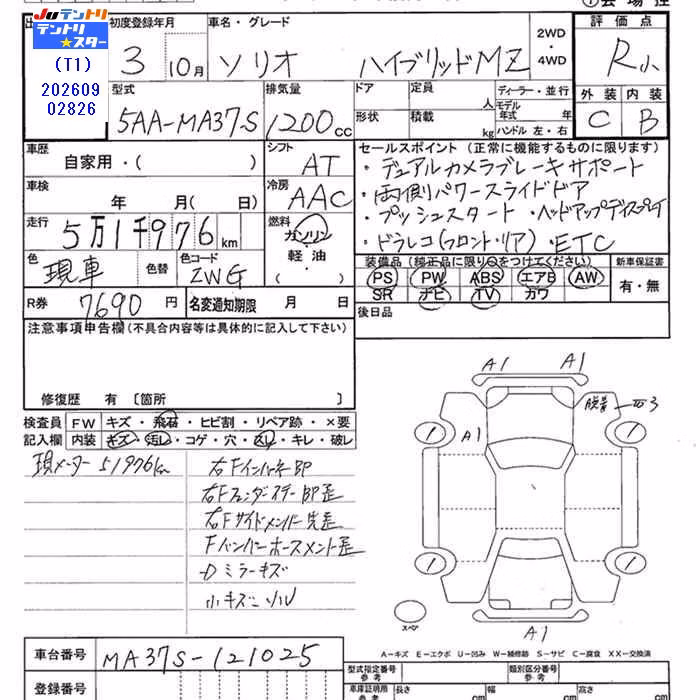 Juテントリ
テントリ
★スター
(T1)
202609
02826
初度登録年月
3 10月
車名・グレード
ソリオ ハイブリッドMZ
2WD
・
4WD
評価点
R小
外装 内装
C B
型式
5AA-MA37S
排気量
1200cc
ドア
定員
人
形状
積載
kg
ディーラー・並行
モデル年式 年
ハンドル 左・右
車歴
自家用・( )
シフト
AT
車検
年 月( 日)
冷房
AAC
走行
5万1千976km
燃料
ガソリン
・
軽油
・
( )
色
現車
色替
色コード
ZWG
R券
7690円
名変通知期限 月 日
セールスポイント(正常に機能するものに限ります)
・デュアルカメラブレーキサポート
・両側パワースライドドア
・プッシュスタート・ヘッドアップディスプレイ
・ドラレコ(フロント・リア)・ETC
装備品(純正品に限り○をつけてください)
PS PW ABS エアB AW
SR ナビ TV カワ
新車保証書
有・無
後日品
注意事項申告欄(不具合内容等は具体的に記入して下さい)
修復歴 有〔箇所 〕
検査員
記入欄
FW キズ・飛石・ヒビ割・リペア跡・×要
内装 キズ・汚レ・コゲ・穴・スレ・キレ・破レ
現メーター51976km
右Fインパネ部
右Fフェンダーステー部歪
右Fサイドメンバー先歪
Fバンパーホースメント歪
Dミラーキズ
小キズ
A1 A1
A1
脱着
1 1
1 1
A1
スペア
A-キズ E-エクボ U-凹み W-補修跡 S-サビ C-腐食 XX-交換済
車台番号 MA37S-121025
登録番号
型式指定番号
参考
類別区分番号
参考
車庫証明用
参考
長さ cm
幅 cm
高さ cm